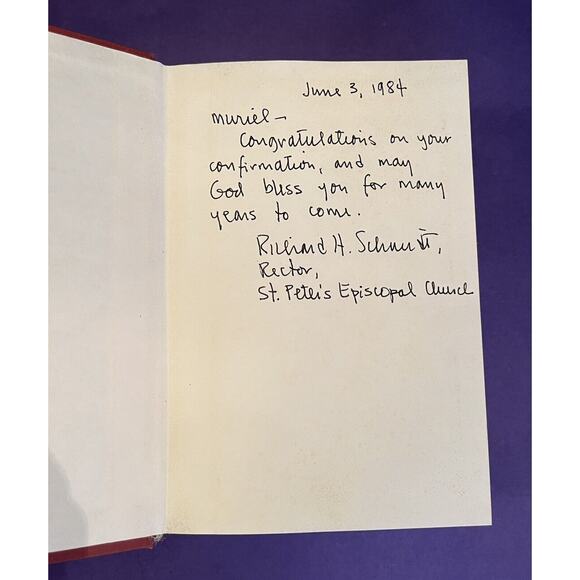 June 3, 1984
Muriel –
Congratulations on your
confirmation, and may
God bless you for many
years to come.
Richard H. Schmidt,
Rector,
St. Peter's Episcopal Church